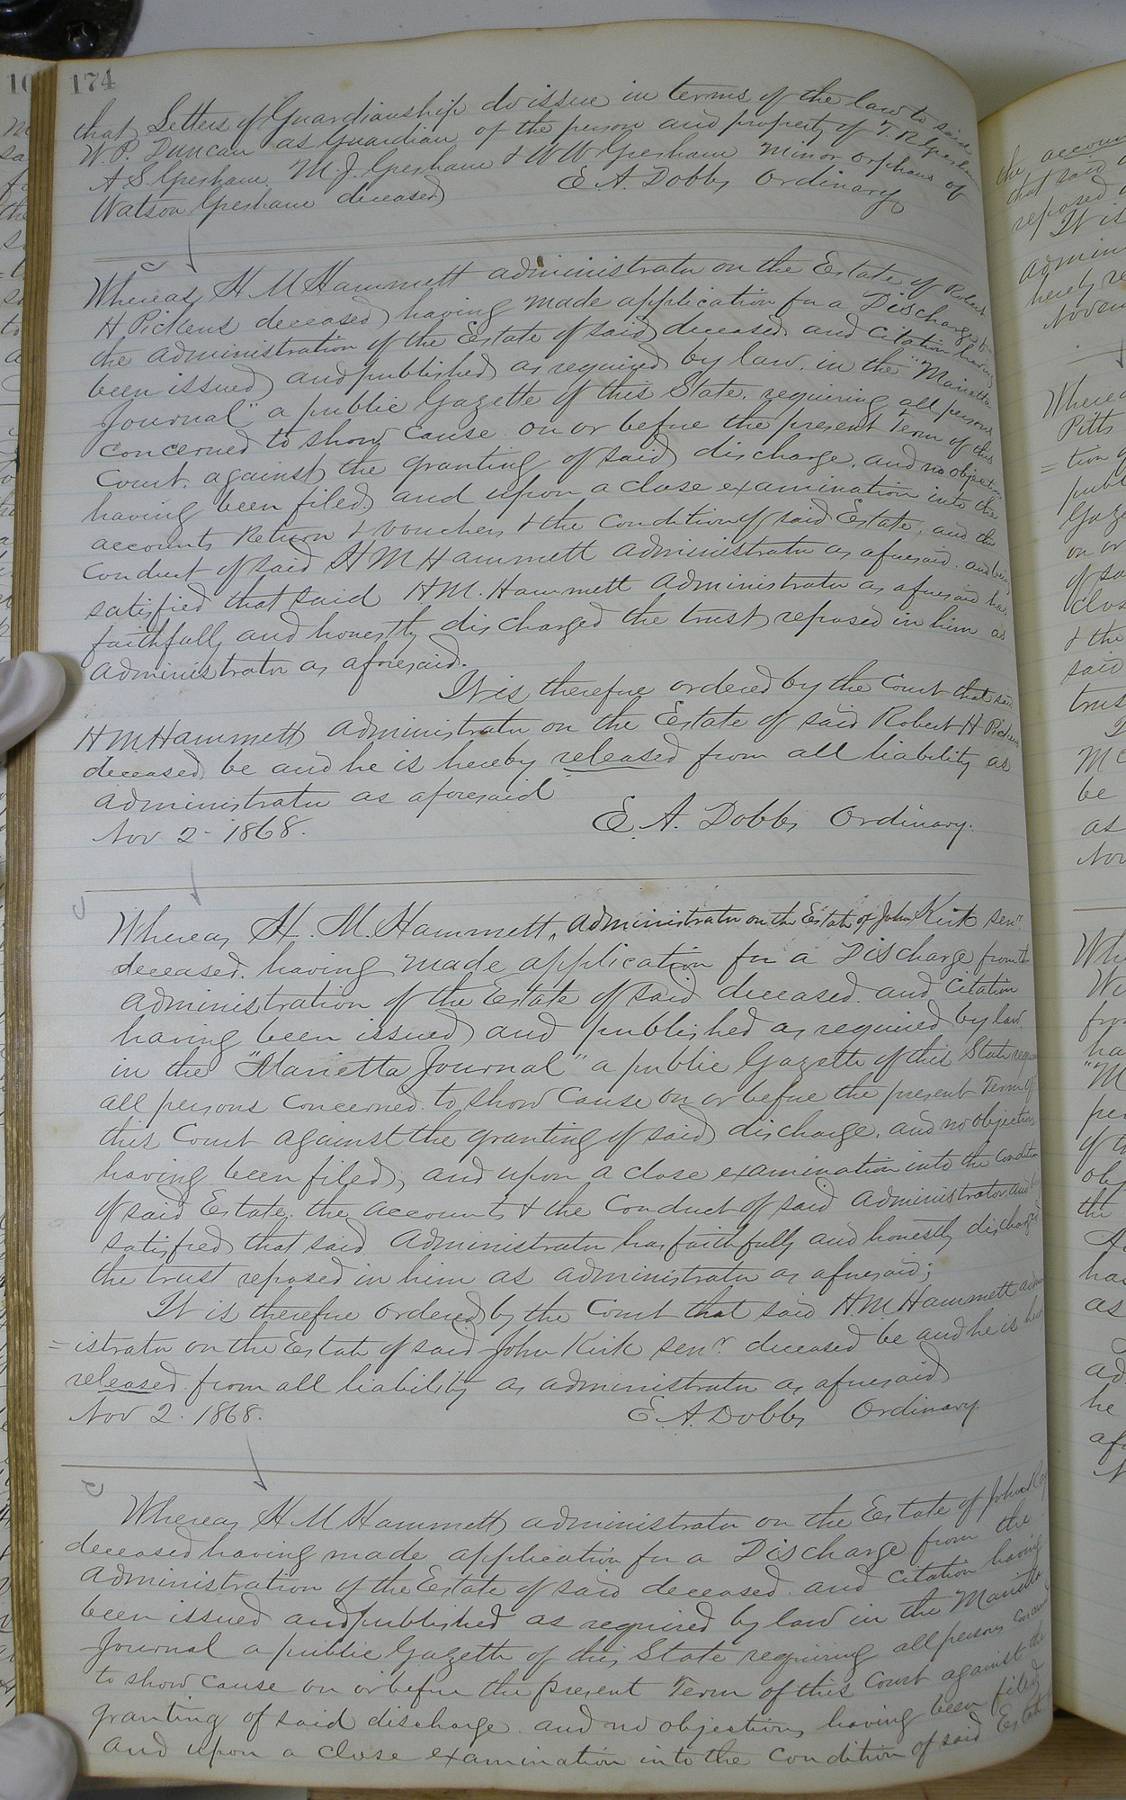 174
that Letters of Guardianship do issue in terms of the law to said
W. P. Duncan as Guardian of the person and property of T. R. Gresham
A S Gresham M. J. Gresham & W W Gresham minor orphans of
Watson Gresham deceased
E A. Dobbs Ordinary
Whereas H M Hammett administrator on the Estate of Robert
H Pickens deceased having made application for a Discharge
the administration of the Estate of said deceased and citation having
been issued and published as required by law, in the "Marietta
Journal" a public Gazette of this State, requiring all persons
concerned to show cause on or before the present Term of this
Court, against the granting of said discharge, and no objection
having been filed and upon a close examination into the
accounts Return & vouchers & the condition of said Estate, and the
conduct of said H M Hammett administrator as aforesaid and being
satisfied that said H M. Hammett administrator as aforesaid has
faithfully and honestly discharged the trust reposed in him as
administrator as aforesaid.
It is therefore ordered by the Court that said
H M Hammett administrator on the Estate of said Robert H Pickens
deceased be and he is hereby released from all liability as
administrator as aforesaid
Nov 2 - 1868.
E. A. Dobbs Ordinary.
Whereas H. M. Hammett, administrator on the Estate of John Kirk senr
deceased. having made application for a Discharge from the
administration of the Estate of said deceased and citation
having been issued and published as required by law
in the "Marietta Journal" a public Gazette of this State
all persons concerned to show cause on or before the present Term of
this Court against the granting of said discharge, and no objection
having been filed, and upon a close examination into the condition
of said Estate, the accounts & the conduct of said administrator and
satisfied that said administrator has faithfully and honestly discharged
the trust reposed in him as administrator as aforesaid;
It is therefore ordered by the Court that said H M Hammett admin
=istrator on the Estate of said John Kirk senr. deceased be and he is
released from all liability as administrator as aforesaid
Nov 2. 1868.
E. A. Dobbs Ordinary
Whereas H M Hammett administrator on the Estate of John
deceased having made application for a Discharge from the
administration of the Estate of said deceased and citation having
been issued and published as required by law in the Marietta
Journal a public Gazette of this State requiring all persons concerned
to show cause on or before the present Term of this Court against the
granting of said discharge and no objections having been filed
and upon a close examination into the condition of said Estate